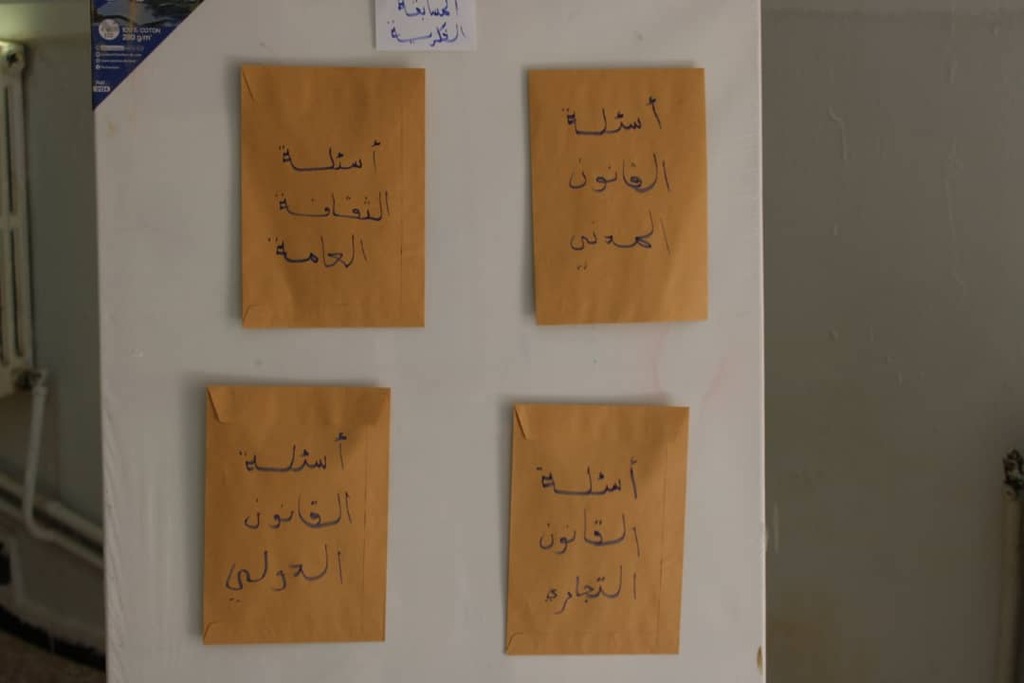 100% COTTON
280 g/m²
المسابقة
الفكرية
أسئلة
القانون
المدني
أسئلة
الثقافة
العامة
أسئلة
القانون
التجاري
أسئلة
القانون
الدولي